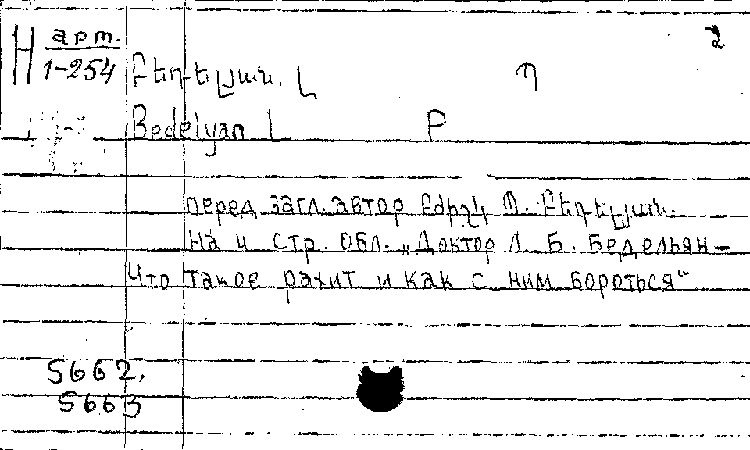 2
Н арт.
1-254
Բեդելյան. Լ Պ
Bedelyan L P
перед загл. автор Բժիշկ Պ. Բեդելյան.
На 4 стр. обл. „Доктор Л. Б. Бедельян –
Что такое рахит и как с ним бороться“
5662,
5663